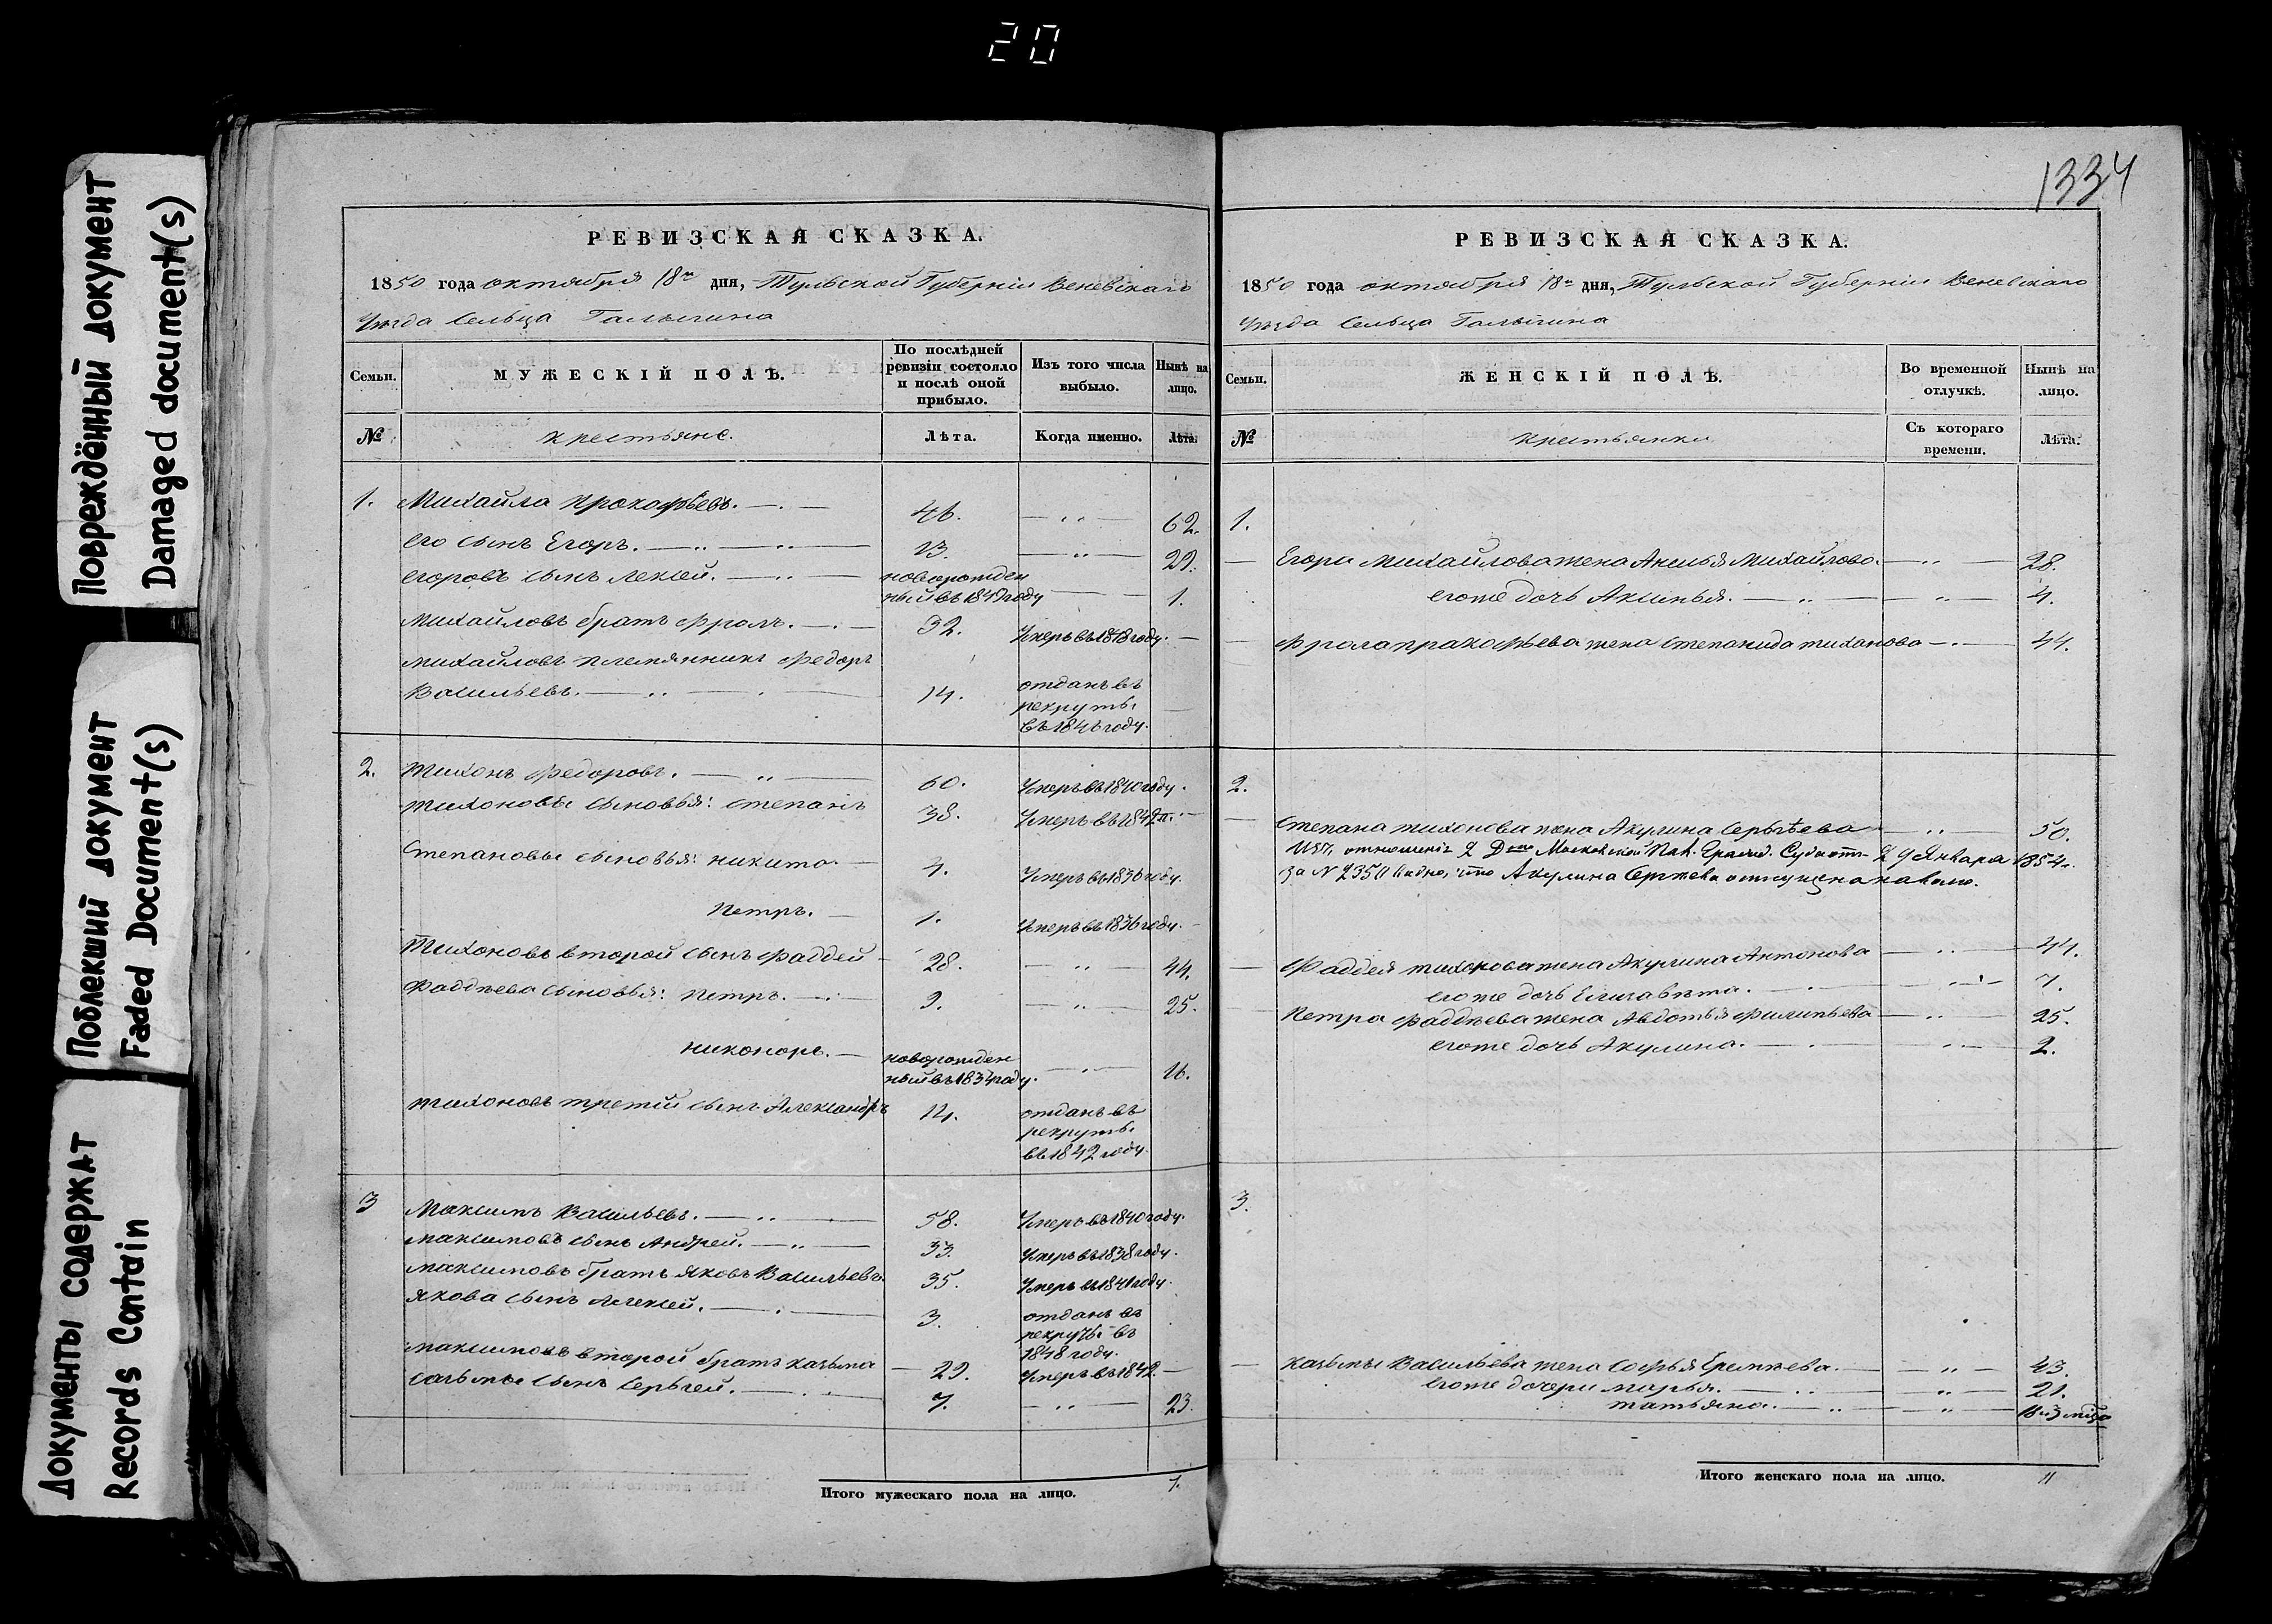 20
Повреждённый документ
Damaged document(s)
Поблекший документ
Faded Document(s)
Документы содержат
Records Contain
РЕВИЗСКАЯ СКАЗКА.
1850 года октября 18го дня, Тульской Губерніи Веневскаго
Уѣзда Сельца
Семьи.
МУЖЕСКІЙ ПОЛЪ.
По послѣдней ревизіи состояло и послѣ оной прибыло.
Изъ того числа выбыло.
Нынѣ на лицо.
№
крестьяне.
Лѣта.
Когда именно.
Лѣта.
1. Михайла Прокофьевъ. 46. 62.
его сынъ Егоръ. 13. 29.
егоровъ сынъ Лексей. новорожден
ный въ 1849 году 1.
Михайловъ братъ Фролъ. 32. Умеръ въ 1848 году.
михайловъ племянникъ Федоръ
Васильевъ. 14. отданъ въ
рекруты
въ 1846 году.
2. Тихонъ Федоровъ. 60. Умеръ въ 1840 году.
тихоновы сыновья: степанъ 38. Умеръ въ 1842 г.
Степановы сыновья: никита 4. Умеръ въ 1836 году.
Петръ. 1. Умеръ въ 1836 году.
Тихоновъ второй сынъ Фаддей 28. 44.
Фаддѣева сыновья: Петръ. 9. 25.
никоноръ. новорожден
ный въ 1834 году. 16.
тихоновъ третій сынъ Александръ 14. отданъ въ
рекруты
въ 1842 году.
3 Максимъ Васильевъ. 58. Умеръ въ 1840 году.
максимовъ сынъ Андрей. 33. Умеръ въ 1838 году.
максимовъ братъ Яковъ Васильевъ. 35. Умеръ въ 1841 году.
Якова сынъ Алексей. 3. отданъ въ
рекруты въ
1848 году.
максимовъ второй братъ казьма 29. Умеръ въ 1842.
сынъ Сергѣй. 7. 23.
Итого мужескаго пола на лицо. 7.
1334
РЕВИЗСКАЯ СКАЗКА.
1850 года октября 18го дня, Тульской Губерніи Веневскаго
Уѣзда Сельца
Семьи.
ЖЕНСКІЙ ПОЛЪ.
Во временной отлучкѣ.
Нынѣ на лицо.
№
крестьянки
Съ котораго времени.
Лѣта.
1.
Егора Михайлова жена Аксинья Михайлова. 28.
егоже дочь Аксинья. 4.
Фрола пракофьева жена степанида тиханова 44.
2.
Степана тихонова жена Акулина Сергѣева 50.
отношенія 2 Московской Пал. Гражд. Суда отъ 9 Января 1854 г.
за N 2350 видно, что Акулина Сергѣева отпущена на волю.
Фаддея тихонова жена Акулина Антонова 44.
егоже дочь Елизавѣта. 7.
Петра Фаддѣева жена Авдотья Филипьева 25.
егоже дочь Акулина. 2.
3.
казьмы Васильева жена Софья Еремѣева. 43.
егоже дочери марья. 21.
татьяна.
Итого женскаго пола на лицо. 11